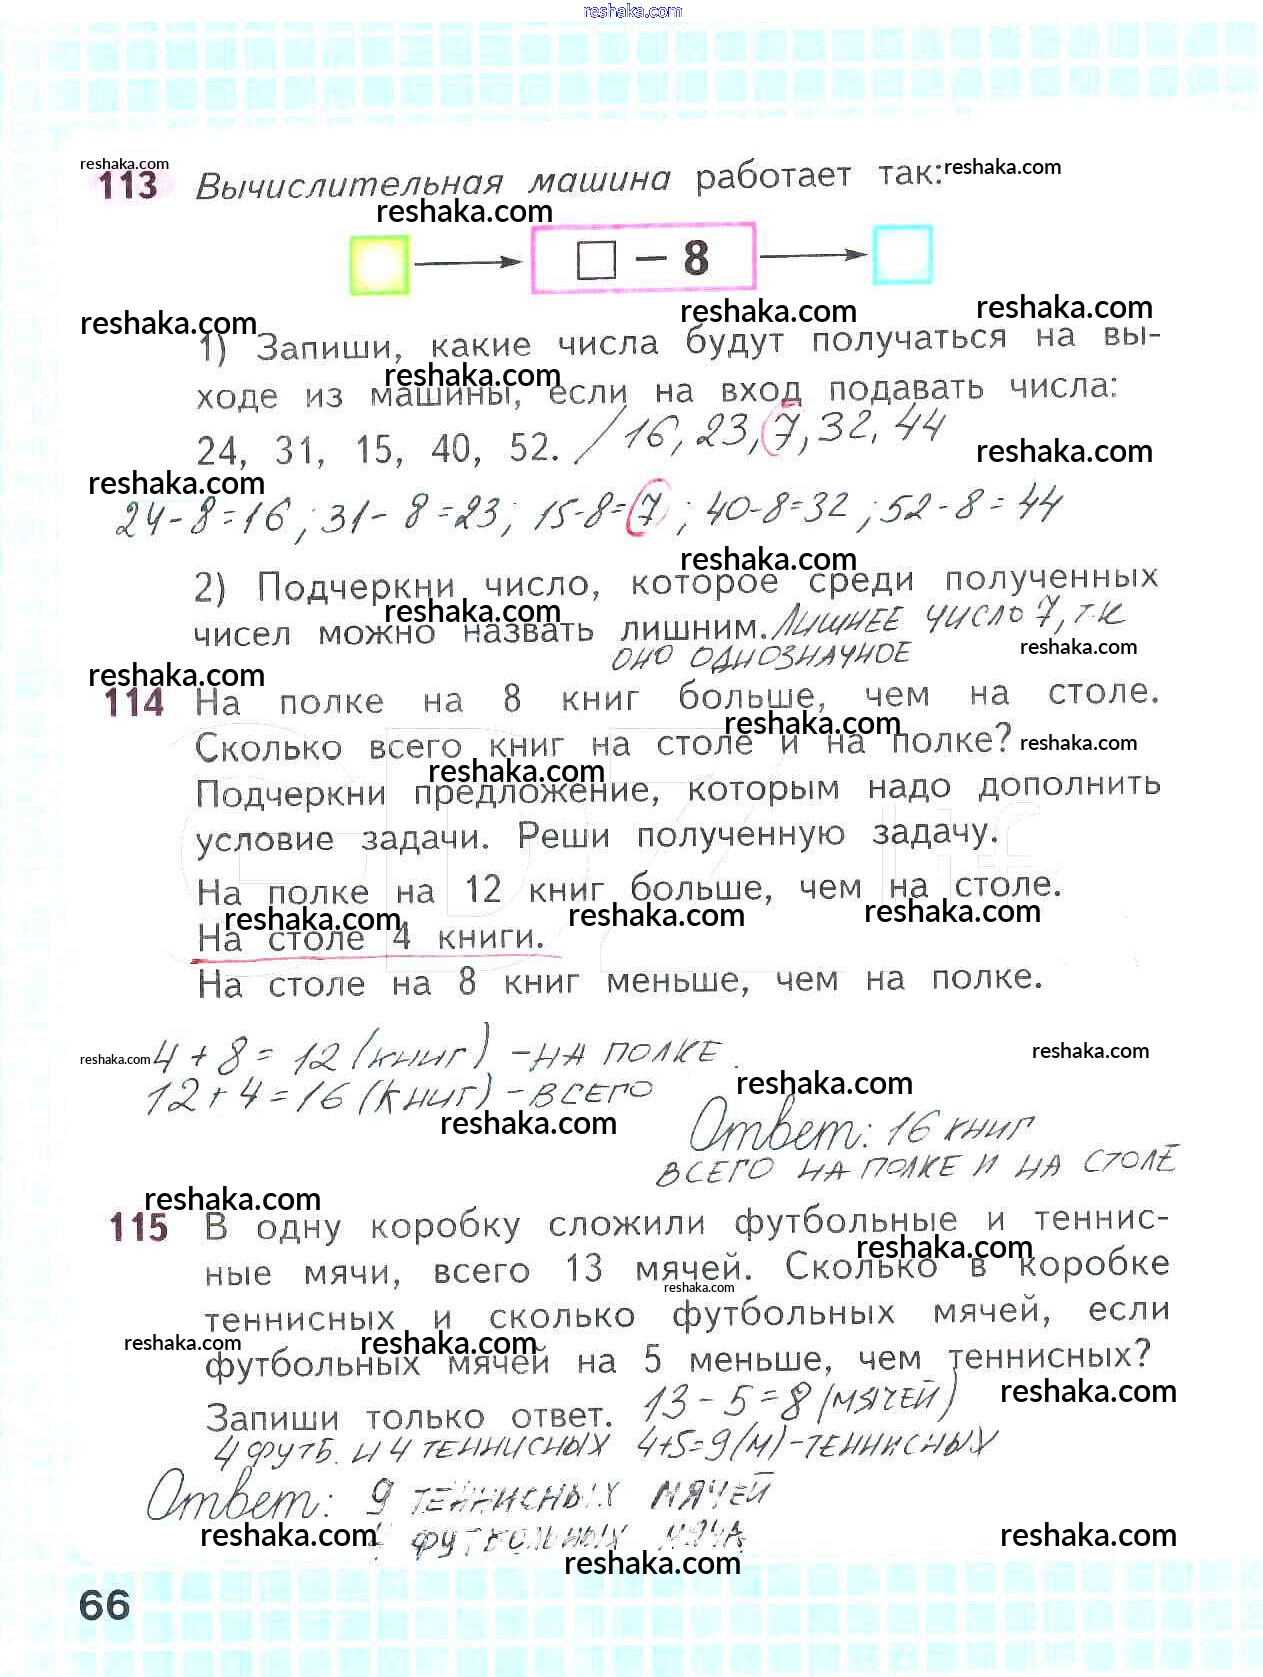 reshaka.com
reshaka.com
113 Вычислительная машина работает так: reshaka.com
reshaka.com
□ – 8
reshaka.com reshaka.com reshaka.com
1) Запиши, какие числа будут получаться на вы-
reshaka.com
ходе из машины, если на вход подавать числа:
24, 31, 15, 40, 52. / 16, 23, 7, 32, 44
reshaka.com
reshaka.com
24-8=16; 31-8=23; 15-8=7; 40-8=32; 52-8=44
reshaka.com
2) Подчеркни число, которое среди полученных
reshaka.com
чисел можно назвать лишним. Лишнее число 7, т.к
оно однозначное reshaka.com
reshaka.com
114 На полке на 8 книг больше, чем на столе.
reshaka.com
Сколько всего книг на столе и на полке? reshaka.com
reshaka.com
Подчеркни предложение, которым надо дополнить
условие задачи. Реши полученную задачу.
На полке на 12 книг больше, чем на столе.
reshaka.com reshaka.com reshaka.com
На столе 4 книги.
На столе на 8 книг меньше, чем на полке.
reshaka.com 4+8=12 (книг) - на полке. reshaka.com
12+4=16 (книг) - всего reshaka.com
reshaka.com
Ответ: 16 книг
всего на полке и на столе
reshaka.com
115 В одну коробку сложили футбольные и теннис-
reshaka.com
ные мячи, всего 13 мячей. Сколько в коробке
reshaka.com
теннисных и сколько футбольных мячей, если
reshaka.com reshaka.com
футбольных мячей на 5 меньше, чем теннисных?
Запиши только ответ. 13-5=8 (мячей) reshaka.com
4 футб. и 4 теннисных 4+5=9(м)-теннисных
Ответ: 9 теннисных мячей
4 футбольных мяча
reshaka.com reshaka.com
reshaka.com
66